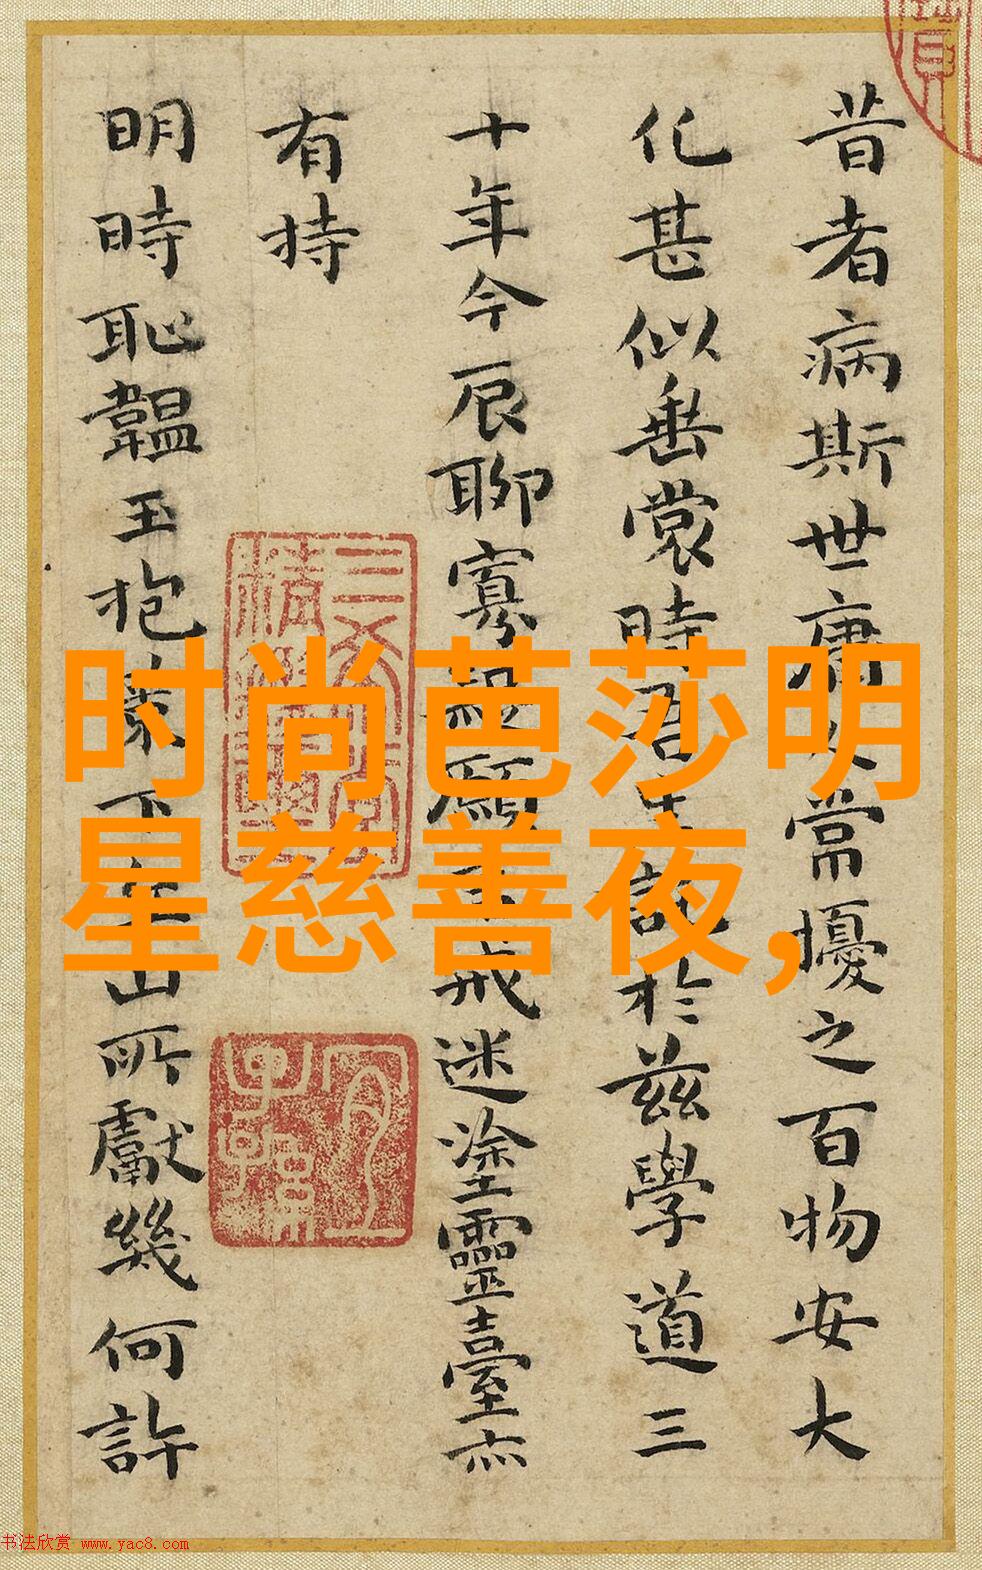 昔者病斯世庸人常擾之百物安大
化甚似垂裳時君生託於茲學道三
十年今辰聊寡疑願子戒迷塗靈臺亦
有持
明時恥韞玉抱璞下山所獻幾何許
时尚芭莎明
星慈善夜,
书法欣赏 www.yac8.com